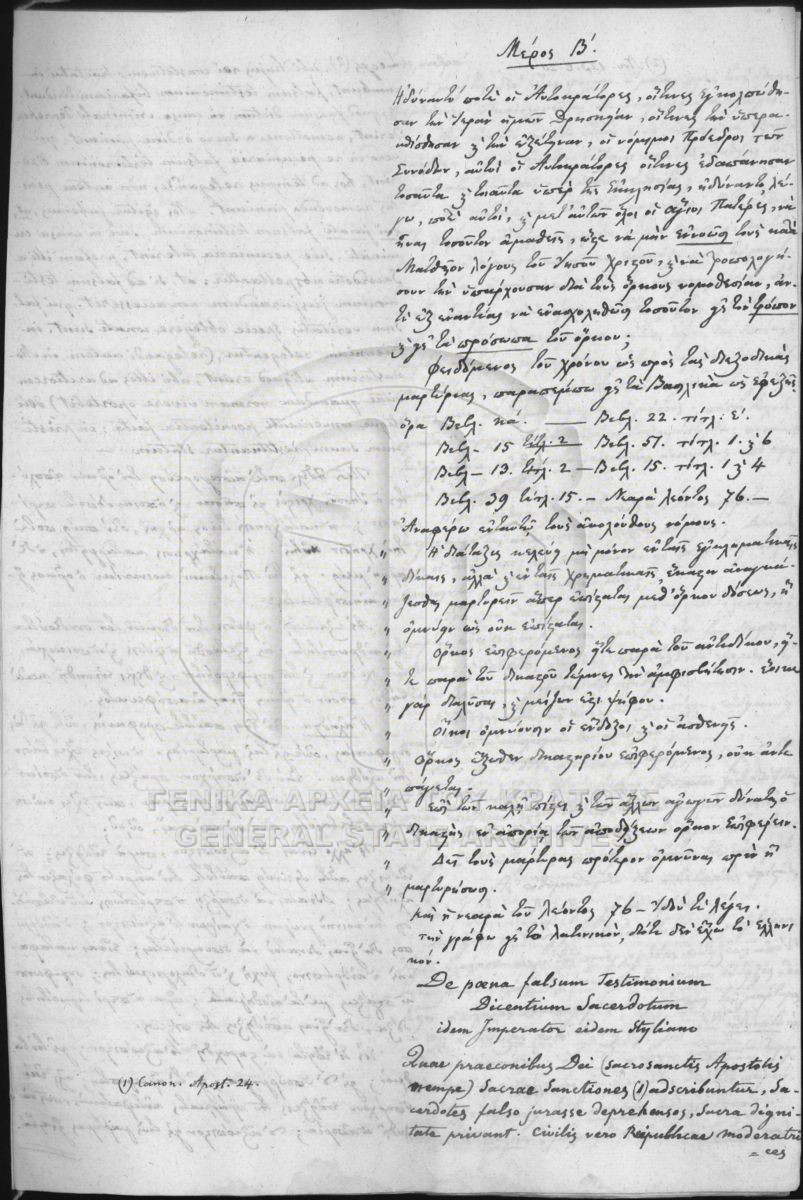 Μέρος Β΄.
Ηδύναντό ποτε οἱ Αὐτοκράτορες, οἵτινες ἐγκολπώθη-
σαν τὴν Ἱερὰν ἡμῶν Θρησκείαν, οἵτινες τὴν ὑπερα-
σπίσθησαν καὶ τὴν ηὔξησαν, οἱ νόμιμοι Πρόεδροι τῶν
Συνόδων, αὐτοὶ οἱ Αὐτοκράτορες οἵτινες ἐδαπάνησαν
τοσαῦτα καὶ τοιαῦτα ὑπὲρ τῆς Ἐκκλησίας, ἠδύναντο, λέ-
γω, ποτὲ αὐτοί, καὶ μετ' αὐτῶν ὅλοι οἱ ἅγιοι Πατέρες, νὰ
ἦναι τοσοῦτον ἀμαθεῖς, ὥςε νὰ μὴν ἐννοῶσι τοὺς κατὰ
Ματθαῖον λόγους τοῦ Ἰησοῦ Χριςοῦ, καὶ νὰ τροπολογή-
σουν τὴν ὑπάρχουσαν διὰ τοὺς ὅρκους νομοθεσίαν, ἀν-
τὶ ἐξ ἐναντίας νὰ ἐνασχοληθῶσι τοσοῦτον εἰς τὸν τρόπον
καὶ εἰς τὰ πρόσωπα τοῦ ὅρκου;
Φειδόμενος τοῦ χρόνου ὡς πρὸς τὰς διεξοδικὰς
μαρτυρίας, παραπέμπω εἰς τὰ Βασιλικὰ ὡς ἐφεξῆς.
ὅρα Βιβλ. κά. — Βιβλ. 22. τίτλ. έ.
Βιβλ. – 15 τίτλ. 2 – Βιβλ. 51. τίτλ. 1. καὶ 6
Βιβλ – 13. τίτλ. 2 – Βιβλ. 15. τίτλ. 1 καὶ 4
Βιβλ. 39 τίτλ. 15. – Νεαρὰ Λέοντος 76. –
Ἀναφέρω ἐνταυθοῖ τοὺς ἀκολούθους νόμους.
„ Ἡ διάταξις κελεύει μὴ μόνον ἐν ταῖς ἐγκληματικαῖς
„ δίκαις, ἀλλὰ καὶ ἐν ταῖς χρηματικαῖς, ἕκαςον ἀναγκά-
„ ζεσθαι μαρτυρεῖν ἅπερ ἐπίςαται μεθ' ὅρκου δόσεως, ἢ
„ ὀμνύειν ὡς οὐκ ἐπίςαται.
„ Ὅρκος ἐπιφερόμενος εἴτε παρὰ τοῦ ἀντιδίκου, εἴ-
„ τε παρὰ τοῦ δικαςοῦ τέμνει τὴν ἀμφισβήτησιν. ἔοικε
„ γὰρ διαλύσει, καὶ μείζων ἐςὶ ψήφου.
„ Οἴκοι ὀμνύουσιν οἱ ἔνδοξοι καὶ οἱ ἀσθενεῖς.
„ Ὅρκος ἔξωθεν δικαςηρίου ἐπιφερόμενος, οὐκ ἀντε
„ πάγεται.
„ Ἐπὶ τῶν καλῇ πίςει καὶ τῶν ἄλλων ἀγωγῶν δύναται ὁ
„ δικαςὴς ἐν ἀπορίᾳ τῶν ἀποδείξεων ὅρκον ἐπιφέρειν.
„ Δεῖ τοὺς μάρτυρας πρότερον ὀμνῦναι πρὶν ἢ
„ μαρτυρήσωσι.
Καὶ ἡ νεαρὰ τοῦ Λέοντος 76 – Ἰδοὺ τί λέγει.
τὴν γράφω εἰς τὸ λατινικὸν, διότι δὲν ἔχω τὸ ἑλληνι
κόν.
De poena falsum Testimonium
Dicentium Sacerdotum
idem Imperator eidem Styliano
Quae praeconibus Dei (sacrosanctis Apostolis
nempe) Sacrae Sanctiones (1) adscribuntur, Sa-
cerdotes falso jurasse deprehensos, sacra digni
tate privant. Civilis vero Reipublicae moderatri
= ces
(1) Canon. Apost. 24.
ΓΕΝΙΚΑ ΑΡΧΕΙΑ ΤΟΥ ΚΡΑΤΟΥΣ
GENERAL STATE ARCHIVES